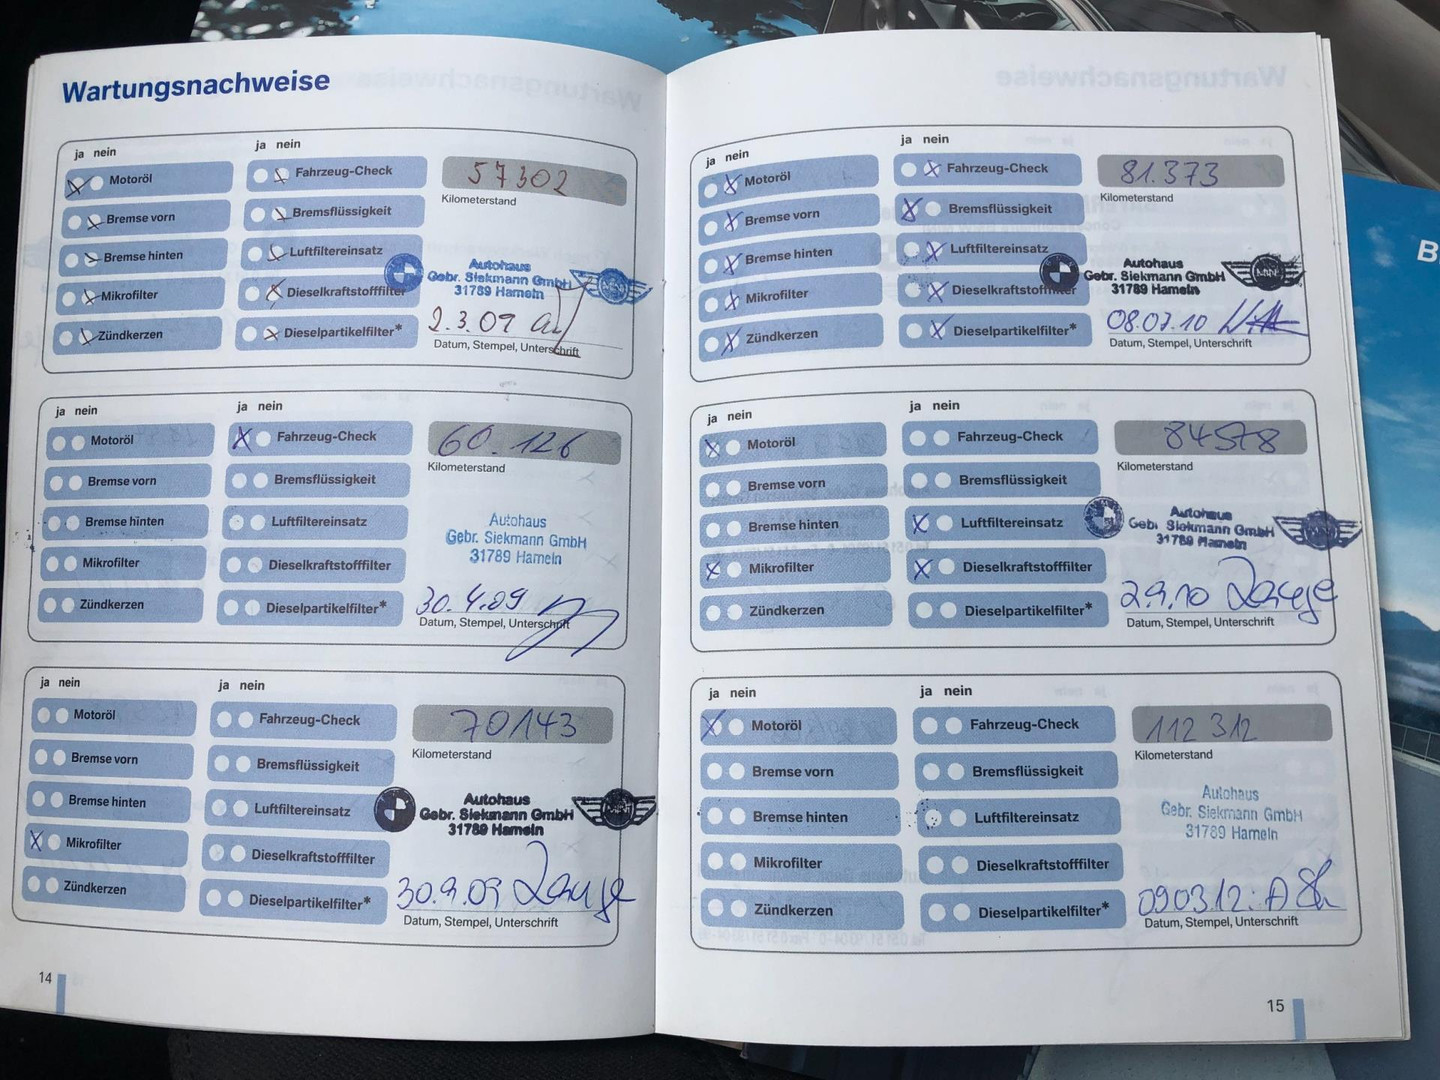 Wartungsnachweise
ja nein
Motoröl
Bremse vorn
Bremse hinten
Mikrofilter
Zündkerzen
ja nein
Fahrzeug-Check
Bremsflüssigkeit
Luftfiltereinsatz
Dieselkraftstofffilter
Dieselpartikelfilter*
57302
Kilometerstand
Autohaus
Gebr. Siekmann GmbH
31789 Hameln
MINI
2.3.09
Datum, Stempel, Unterschrift
ja nein
Motoröl
Bremse vorn
Bremse hinten
Mikrofilter
Zündkerzen
ja nein
Fahrzeug-Check
Bremsflüssigkeit
Luftfiltereinsatz
Dieselkraftstofffilter
Dieselpartikelfilter*
60.126
Kilometerstand
Autohaus
Gebr. Siekmann GmbH
31789 Hameln
30.4.09
Datum, Stempel, Unterschrift
ja nein
Motoröl
Bremse vorn
Bremse hinten
Mikrofilter
Zündkerzen
ja nein
Fahrzeug-Check
Bremsflüssigkeit
Luftfiltereinsatz
Dieselkraftstofffilter
Dieselpartikelfilter*
70143
Kilometerstand
Autohaus
Gebr. Siekmann GmbH
31789 Hameln
MINI
30.9.09
Datum, Stempel, Unterschrift
14
ja nein
Motoröl
Bremse vorn
Bremse hinten
Mikrofilter
Zündkerzen
ja nein
Fahrzeug-Check
Bremsflüssigkeit
Luftfiltereinsatz
Dieselkraftstofffilter
Dieselpartikelfilter*
81.373
Kilometerstand
Autohaus
Gebr. Siekmann GmbH
31789 Hameln
MINI
08.07.10
Datum, Stempel, Unterschrift
ja nein
Motoröl
Bremse vorn
Bremse hinten
Mikrofilter
Zündkerzen
ja nein
Fahrzeug-Check
Bremsflüssigkeit
Luftfiltereinsatz
Dieselkraftstofffilter
Dieselpartikelfilter*
84578
Kilometerstand
Autohaus
Gebr. Siekmann GmbH
31789 Hameln
2.9.10
Datum, Stempel, Unterschrift
ja nein
Motoröl
Bremse vorn
Bremse hinten
Mikrofilter
Zündkerzen
ja nein
Fahrzeug-Check
Bremsflüssigkeit
Luftfiltereinsatz
Dieselkraftstofffilter
Dieselpartikelfilter*
112312
Kilometerstand
Autohaus
Gebr. Siekmann GmbH
31789 Hameln
09.03.12
Datum, Stempel, Unterschrift
15
B